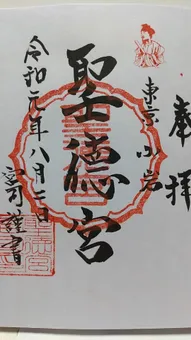 奉拝
東京 小岩
聖徳宮
令和元年八月一日
宮司謹書